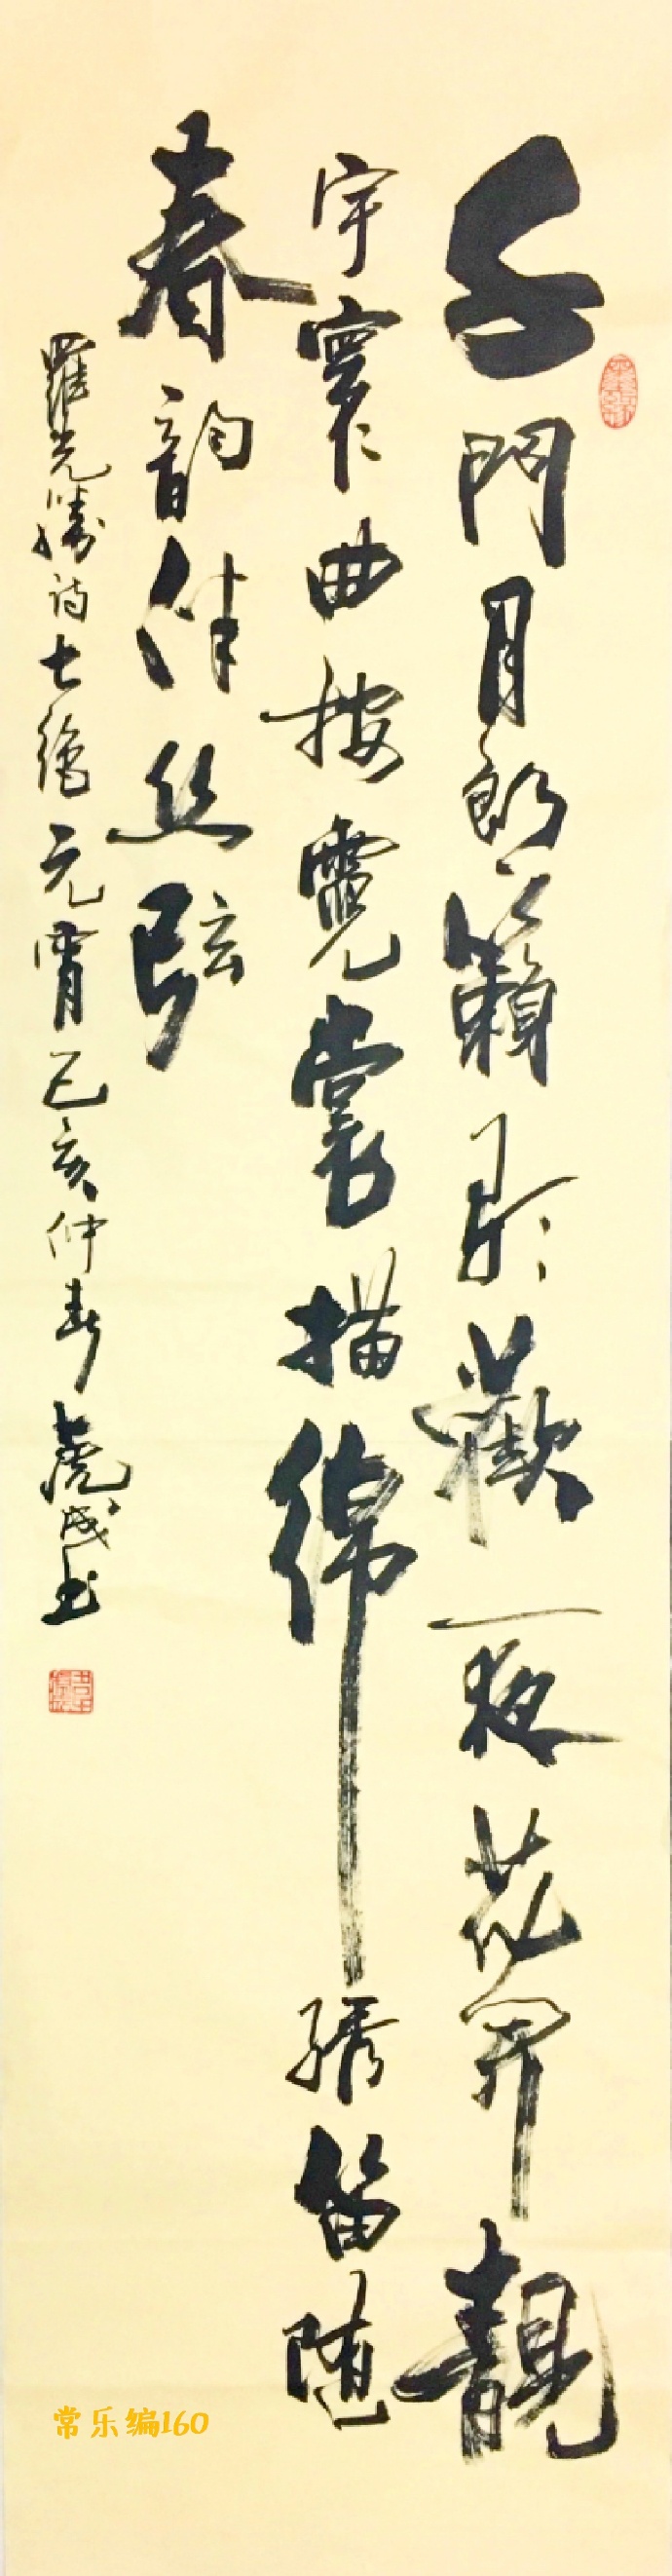 千門月朗籟聲歡一夜花開靚
宇寰曲按霓裳描錦綉笛随
春韵伴丝弦
羅光勝诗七絕元宵己亥仲春虎成书
常乐编160